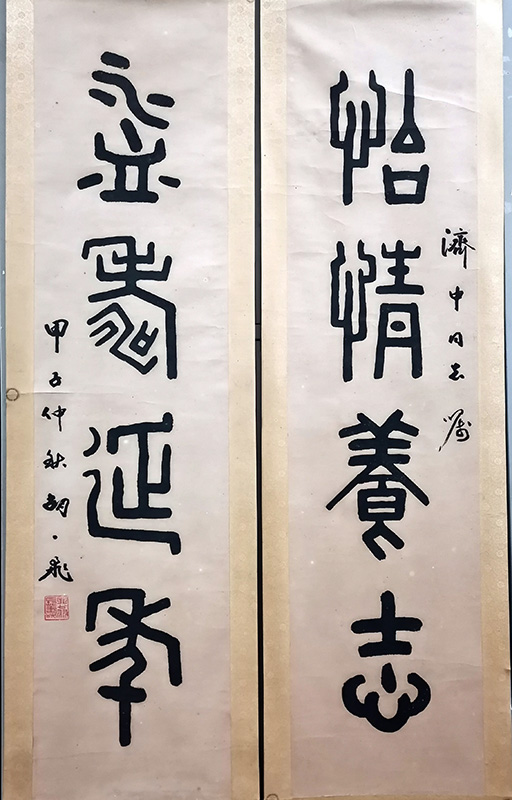 濟中同志囑
怡情養志
益壽延年
甲子仲秋胡一飛